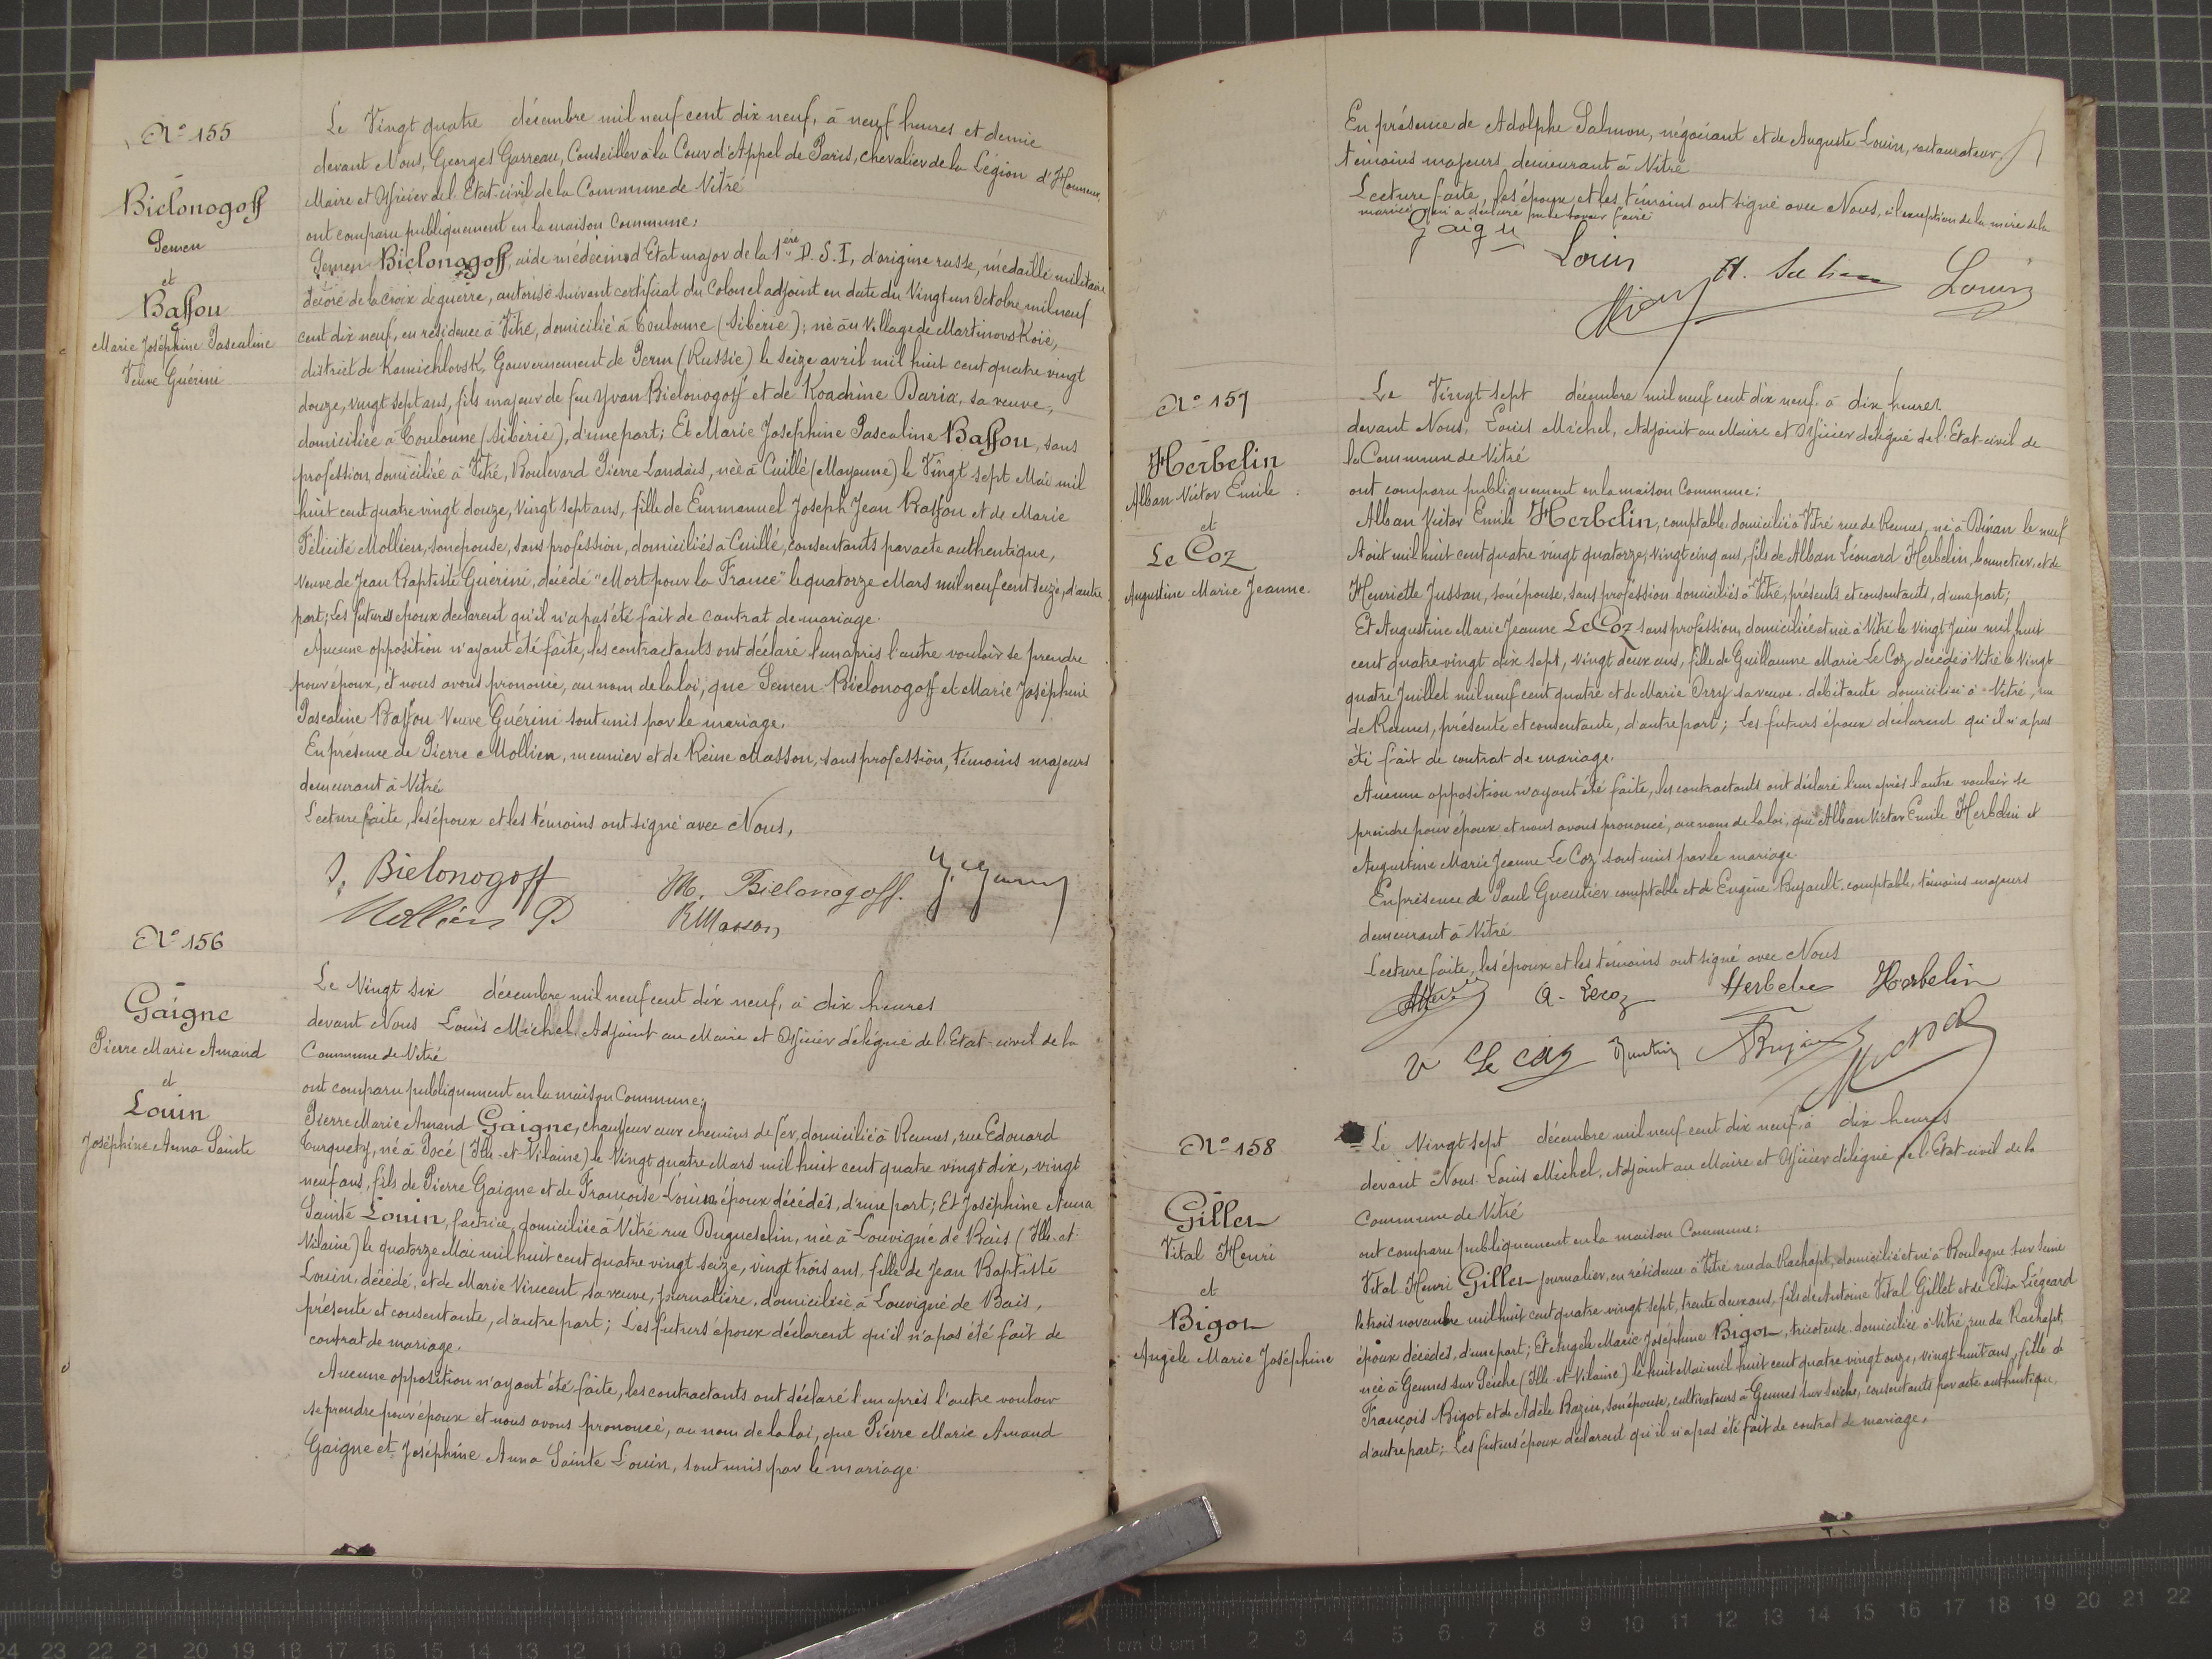 N° 155
Bielonogoff
Semen
et
Baffou
Marie Joséphine Pascaline
Veuve Guérini
Le Vingt quatre décembre mil neuf cent dix neuf, à neuf heures et demie
devant Nous, Georges Garreau, Conseiller à la Cour d'Appel de Paris, chevalier de la Légion d'Honneur,
Maire et Officier de l'Etat-civil de la Commune de Vitré
ont comparu publiquement en la maison Commune:
Semen Bielonogoff, aide médecin d'Etat major de la 1ère D.S.I, d'origine russe, médaillé militaire
décoré de la croix de guerre, autorisé suivant certificat du Colonel adjoint en date du Vingt un Octobre mil neuf
cent dix neuf, en résidence à Vitré, domicilié à Toulonne (Sibérie); né au Village de Martinovskoié,
district de Kamichlovsk, Gouvernement de Perm (Russie) le seize avril mil huit cent quatre vingt
douze, vingt sept ans, fils majeur de feu Yvan Bielonogoff et de Koadrine Daria, sa veuve,
domiciliée à Toulonne (Sibérie), d'une part; Et Marie Joséphine Pascaline Baffou, sans
profession, domiciliée à Vitré, Boulevard Pierre Landais, née à Cuillé (Mayenne) le Vingt sept Mai mil
huit cent quatre vingt douze, Vingt sept ans, fille de Emmanuel Joseph Jean Baffou et de Marie
Félicité Mollien, son épouse, sans profession, domiciliés à Cuillé, consentants par acte authentique,
Veuve de Jean Baptiste Guérini, décédé "Mort pour la France" le quatorze Mars mil neuf cent seize, d'autre
part; Les futurs époux déclarent qu'il n'a pas été fait de contrat de mariage.
Aucune opposition n'ayant été faite, les contractants ont déclaré l'un après l'autre vouloir se prendre
pour époux, et nous avons prononcé, au nom de la loi, que Semen Bielonogoff et Marie Joséphine
Pascaline Baffou Veuve Guérini sont unis par le mariage.
En présence de Pierre Mollien, meunier et de Reine Masson, sans profession, témoins majeurs
demeurant à Vitré
Lecture faite, les époux et les témoins ont signé avec Nous,
S. Bielonogoff M. Bielonogoff.
Mollien P. R Masson
N° 156
Gaigne
Pierre Marie Amand
et
Louin
Joséphine Anna Sainte
Le Vingt six décembre mil neuf cent dix neuf, à dix heures
devant Nous Louis Michel, Adjoint au Maire et Officier délégué de l'Etat-civil de la
Commune de Vitré
ont comparu publiquement en la maison Commune:
Pierre Marie Amand Gaigne, chauffeur aux chemins de fer, domicilié à Rennes, rue Edouard
Turquety, né à Pocé (Ille-et-Vilaine) le Vingt quatre Mars mil huit cent quatre vingt dix, vingt
neuf ans, fils de Pierre Gaigne et de Françoise Louin époux décédés, d'une part; Et Joséphine Anna
Sainte Louin, factrice, domiciliée à Vitré rue Duguesclin, née à Louvigné de Bais (Ille-et-
Vilaine) le quatorze Mai mil huit cent quatre vingt seize, vingt trois ans, fille de Jean Baptiste
Louin, décédé, et de Marie Vincent, sa veuve, journalière, domiciliée à Louvigné de Bais,
présente et consentante, d'autre part; Les futurs époux déclarent qu'il n'a pas été fait de
contrat de mariage.
Aucune opposition n'ayant été faite, les contractants ont déclaré l'un après l'autre vouloir
se prendre pour époux et nous avons prononcé, au nom de la loi, que Pierre Marie Amand
Gaigne et Joséphine Anna Sainte Louin, sont unis par le mariage
En présence de Adolphe Salmon, négociant et de Auguste Louin, restaurateur,
témoins majeurs demeurant à Vitré
Lecture faite, les époux et les témoins ont signé avec Nous, à l'exception de la mère de la
mariée qui a déclaré ne le savoir faire
Gaigne Louin Louin
N° 157
Herbelin
Alban Victor Emile
et
Le Coz
Augustine Marie Jeanne.
Le Vingt sept décembre mil neuf cent dix neuf à dix heures
devant Nous, Louis Michel, Adjoint au Maire et Officier délégué de l'Etat-civil de
la Commune de Vitré
ont comparu publiquement en la maison Commune:
Alban Victor Emile Herbelin, comptable, domicilié à Vitré rue de Rennes, né à Dinan le neuf
Août mil huit cent quatre vingt quatorze, vingt cinq ans, fils de Alban Léonard Herbelin, bonnetier, et de
Henriette Jussan, son épouse, sans profession domiciliés à Vitré, présents et consentants, d'une part;
Et Augustine Marie Jeanne Le Coz sans profession, domiciliée et née à Vitré le vingt Juin mil huit
cent quatre vingt dix sept, vingt deux ans, fille de Guillaume Marie Le Coz, décédé à Vitré le Vingt
quatre Juillet mil neuf cent quatre et de Marie Orry sa veuve, débitante domiciliée à Vitré, rue
de Rennes, présente et consentante, d'autre part; Les futurs époux déclarent qu'il n'a pas
été fait de contrat de mariage.
Aucune opposition n'ayant été faite, les contractants ont déclaré l'un après l'autre vouloir se
prendre pour époux et nous avons prononcé, au nom de la loi, que Alban Victor Emile Herbelin et
Augustine Marie Jeanne Le Coz sont unis par le mariage.
En présence de Paul comptable et de Eugène Bujault, comptable, témoins majeurs
demeurant à Vitré
Lecture faite, les époux et les témoins ont signé avec Nous
A. Lecoz Herbelin Herbelin
V Le Coz
N° 158
Gillet
Vital Henri
et
Bigot
Angèle Marie Joséphine
Le Vingt sept décembre mil neuf cent dix neuf, à dix heures
devant Nous Louis Michel, Adjoint au Maire et Officier délégué de l'Etat-civil de la
Commune de Vitré
ont comparu publiquement en la maison Commune:
Vital Henri Gillet journalier, en résidence à Vitré rue du Rachapt, domicilié et né à Boulogne sur Seine
le trois novembre mil huit cent quatre vingt sept, trente deux ans, fils de Antoine Vital Gillet et de Elisa Liégeard
époux décédés, d'une part; Et Angèle Marie Joséphine Bigot, tricoteuse, domiciliée à Vitré, rue du Rachapt,
née à Gennes sur Seiche (Ille-et-Vilaine) le huit Mai mil huit cent quatre vingt onze, vingt huit ans, fille de
François Bigot et de Adèle Bazin, son épouse, cultivateurs à Gennes sur Seiche, consentants par acte authentique,
d'autre part; Les futurs époux déclarent qu'il n'a pas été fait de contrat de mariage.